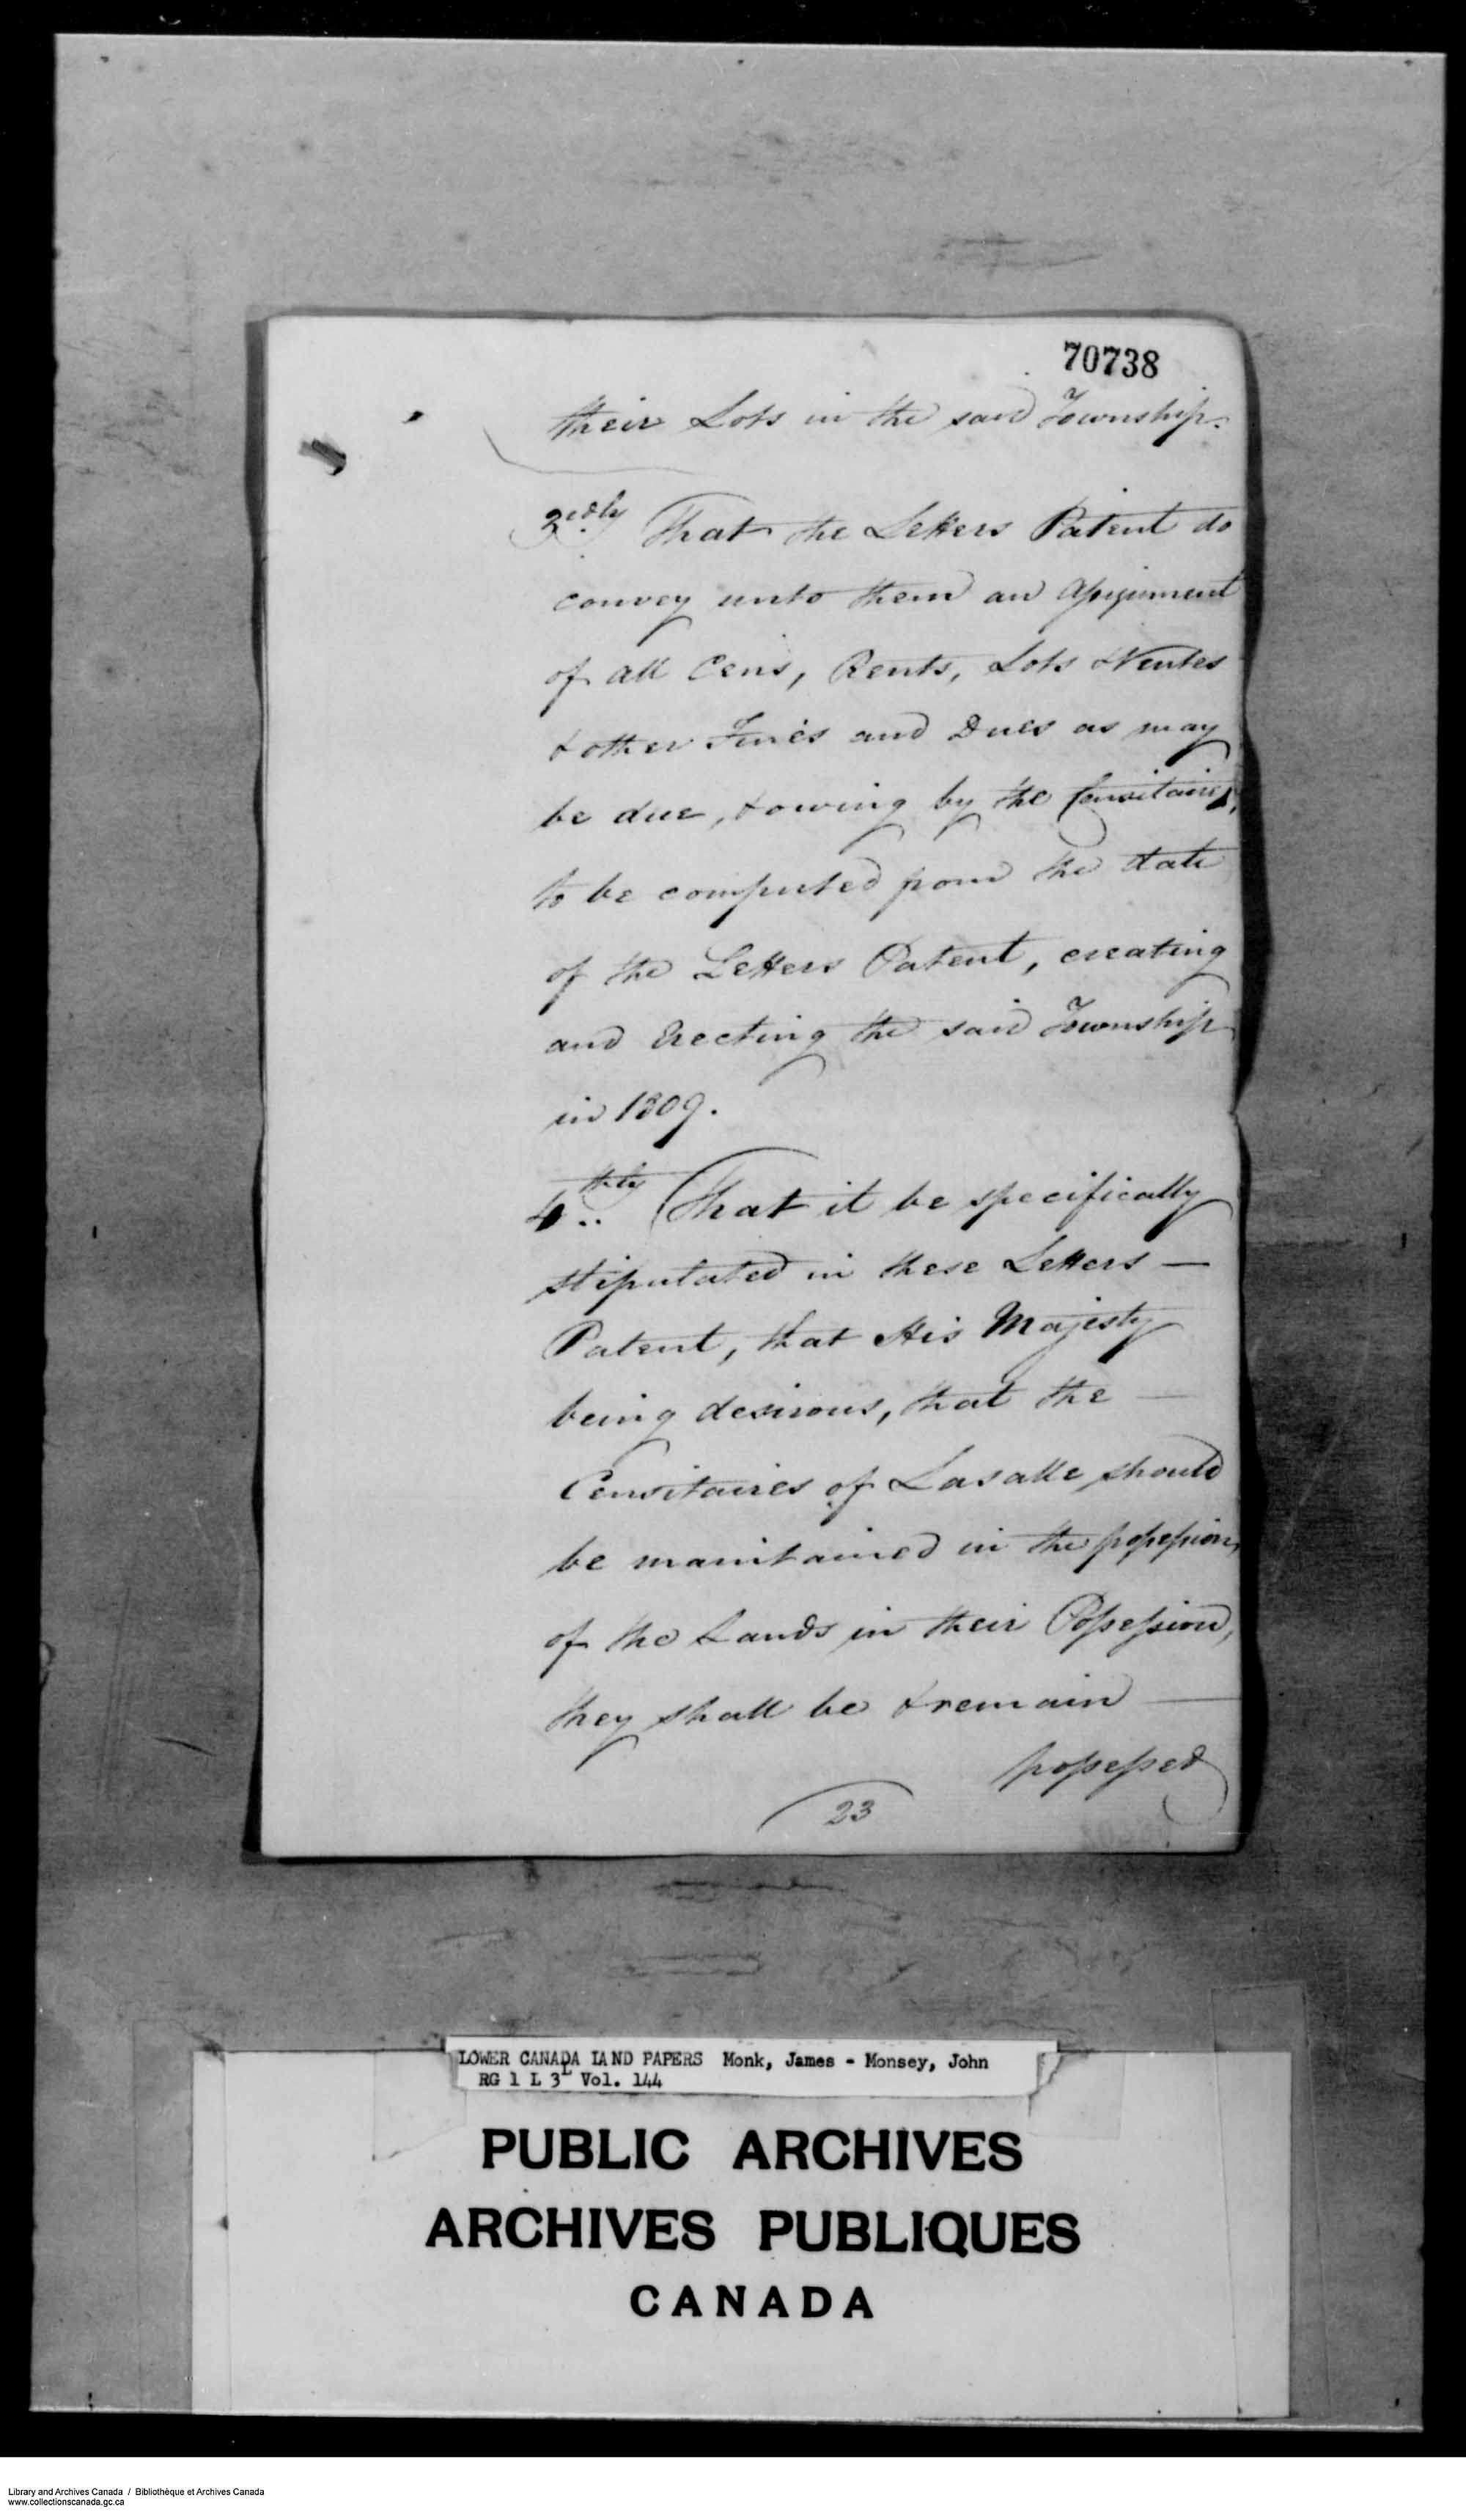 70738
their Lots in the said Township.
3rdly That the Letters Patent do
convey unto them an assignment
of all Cens, Rents, Lots & Ventes
& other Fines and Dues as may
be due, & owing by the Censitaires,
to be computed from the date
of the Letters Patent, creating
and Erecting the said Township
in 1809.
4thly That it be specifically
stipulated in these Letters —
Patent, that His Majesty
being desirous, that the —
Censitaires of Lasalle should
be maintained in the possession,
of the Lands in their Possession,
they shall be & remain —
possessed
23
LOWER CANADA LAND PAPERS Monk, James - Monsey, John
RG 1 L 3L Vol. 144
PUBLIC ARCHIVES
ARCHIVES PUBLIQUES
CANADA
Library and Archives Canada / Bibliothèque et Archives Canada
www.collectionscanada.gc.ca